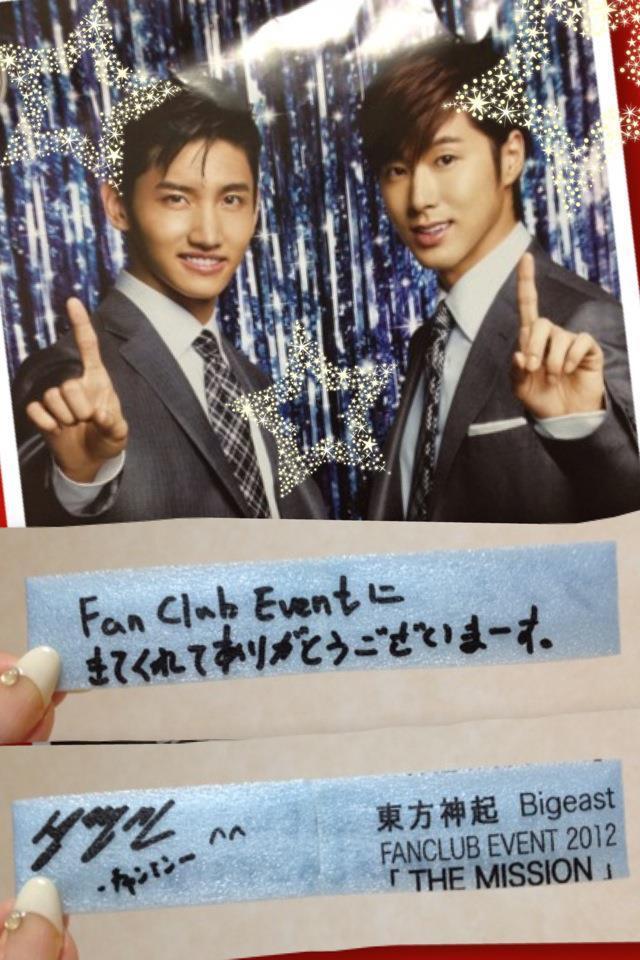 Fan Club Eventに
きてくれてありがとうございまーす。
^^
-チャンミンー
東方神起 Bigeast
FANCLUB EVENT 2012
「THE MISSION」